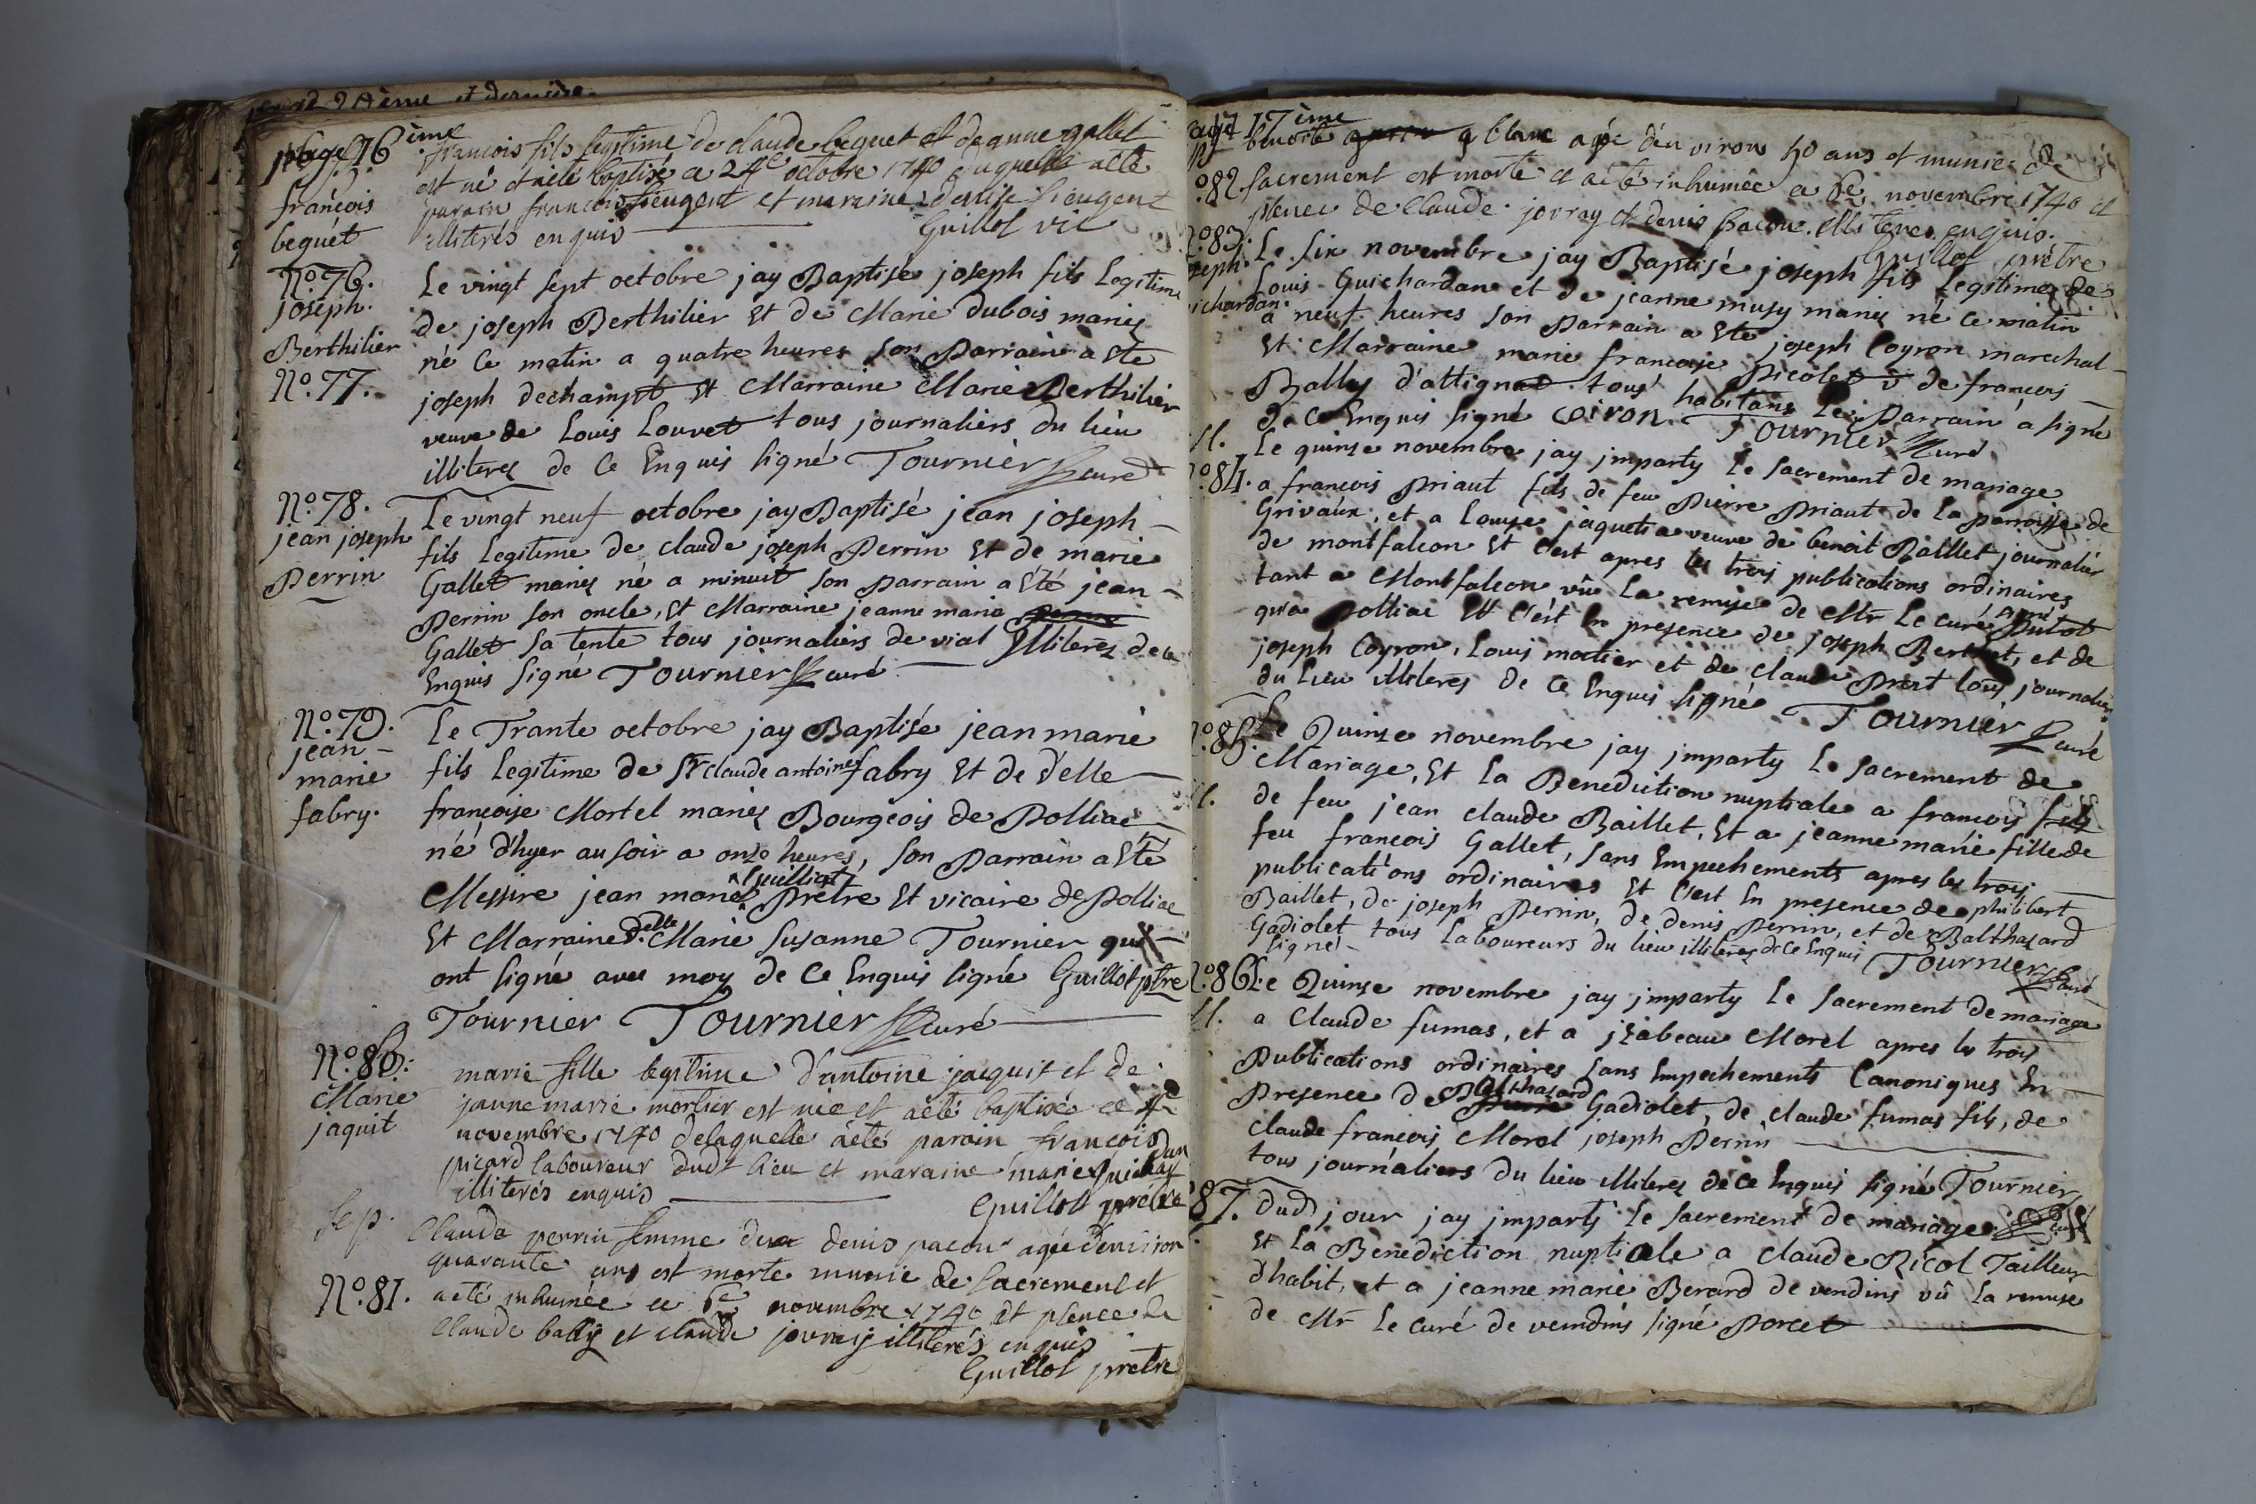 page 16ème
françois
beguet
françois fils legitime de claude beguet et de anne gallet
est né et aeté baptisé ce 24e octobre 1740 duquelle aeté
parain françois fieugent et maraine denise fieugent
illiterés enquis Guillot vic
No. 76.
joseph.
Berthilier
No. 77.
Le vingt sept octobre jay Baptisé joseph fils Legitime
de joseph Berthilier Et de Marie dubois mariez
né ce matin a quatre heures son Parrain a Eté
joseph dechampt Et Marraine Marie Berthilier
veuve de Louis Louvet tous journaliers du lieu
illiterez de ce Enquis signé Tournier curé
No. 78.
jean joseph
Perrin
Le vingt neuf octobre jay Baptisé jean joseph
fils Legitime de claude joseph Perrin Et de marie
Gallet mariez né a minuit son Parrain a Eté jean
Perrin son oncle, Et Marraine jeanne marie
Gallet sa tente tous journaliers de vial Illiterez de ce
Enquis signé Tournier curé
No. 79.
jean
marie
fabry.
Le Trante octobre jay Baptisé jean marie
fils Legitime de Sr claude antoine fabry Et de d'elle
françoise Mortel mariez Bourgeois de Polliac
né d'hyer au soir a onze heures, son Parrain a Eté
Messire jean marie Guilliot Prêtre Et vicaire de Polliac
Et Marraine d.elle Marie Susanne Tournier qui
ont signé avec moy de ce Enquis signé Guillot ptre
Tournier Tournier curé
No. 80.
Marie
jaquit
marie fille legitime d'antoine jacquit et de
jeanne marie mortier est née et aeté baptisée ce 4e
novembre 1740 delaquelle aeté parain françois
picard laboureur dudt lieu et maraine marie Guichardan
illiterés enquis Guillot prêtre
Sep.
No. 81.
Clauda perrin femme de denis pacou agée denviron
quarante ans est morte munie de sacrement et
aeté inhumée ce 6e novembre 1740 et pence de
Claude bally et claude jovray illiterés enquis
Guillot prêtre
page 17ème
No. 82
benoite blanc agée denviron 50 ans et munie de
sacrement est morte et aeté inhumée ce 6e novembre 1740 et
pence de claude jovray et denis pacou illiterés enquis.
Guillot prêtre
No. 83.
joseph.
guichardan.
Le six novembre jay Baptisé joseph fils Legitime de
Louis Guichardan et de jeanne musy mariez né ce matin
a neuf heures son Parrain a Eté joseph Coyron marechal
Et Marraine marie françoise Picolet de françois
Bally d'attignat tous habitans Le Parrain a signé
de ce Enquis signé Coiron Tournier curé
M.
No. 84.
Le quinze novembre jay imparty Le sacrement de mariage
a françois Priaut fils de feu Pierre Priaut de La Parroisse de
Grivaux, et a Louise jaquet a veuve de benoit Baillet journalier
de montfalcon Et c'est apres les trois publications ordinaires
tant a Montfalcon vû La remise de Mr Le curé signé Putot
qu'a Polliac Et c'est En presence de joseph Berthet, et de
joseph Coyron, Louis mortier et de claude Prost tous journaliers
du Lieu illiterez de ce Enquis signé Tournier curé
No. 85.
M.
Le Quinze novembre jay imparty Le sacrement de
Mariage, Et La Benediction nuptiale a francois fils
de feu jean claude Baillet, Et a jeanne marie fille de
feu françois Gallet, sans Empechements apres les trois
publications ordinaires Et c'est En presence de philibert
Baillet, de joseph Perrin, de denis Perrin, et de Balthazard
Gadiolet tous Laboureurs du lieu illiterez de ce Enquis
signé Tournier curé
No. 86.
M.
Le Quinze novembre jay imparty Le sacrement de mariage
a claude fumas, et a jzabeau Morel apres les trois
Publications ordinaires sans Empechements Canoniques En
Presence de Balthazard Gadiolet, de claude fumas fils, de
claude françois Morel joseph Perrin
tous journaliers du lieu illiterez de ce Enquis signé Tournier
curé
87.
Dud jour jay imparty Le sacrement de mariage
Et La Benediction nuptiale a claude Nicol Tailleur
d'habit, et a jeanne marie Berard de vendins vû La remise
de Mr Le curé de vendins signé Porcet